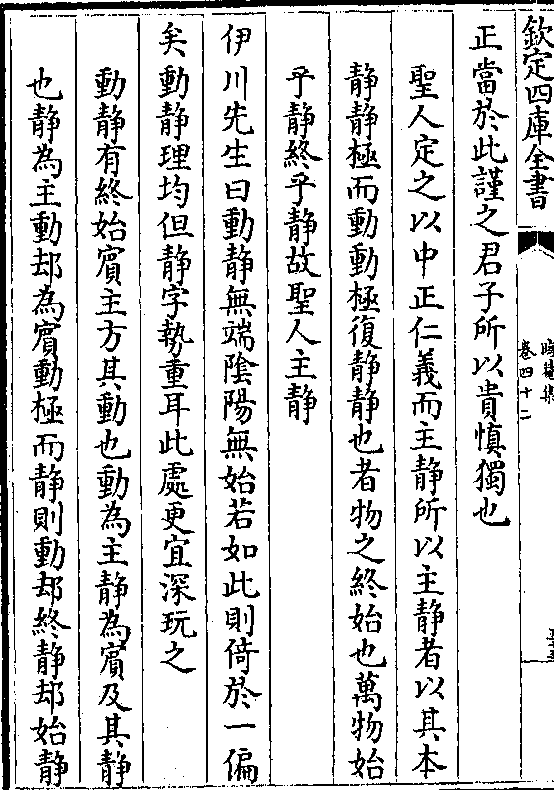 欽定四庫全書
晦菴集
卷四十二
正當於此謹之君子所以貴慎獨也
聖人定之以中正仁義而主静所以主静者以其本
静静極而動動極復静静也者物之終始也萬物始
乎静終乎静故聖人主静
伊川先生曰動静無端隂陽無始若如此則倚於一偏
矣動静理均但静字勢重耳此處更宜深玩之
動静有終始賓主方其動也動為主静為賓及其静
也静為主動却為賓動極而静則動却終静却始静